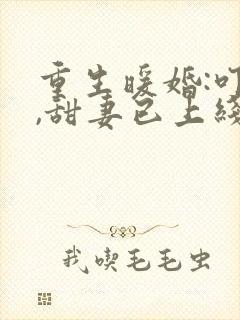 重生暖婚:叮
,甜妻已上线
我喫毛毛虫